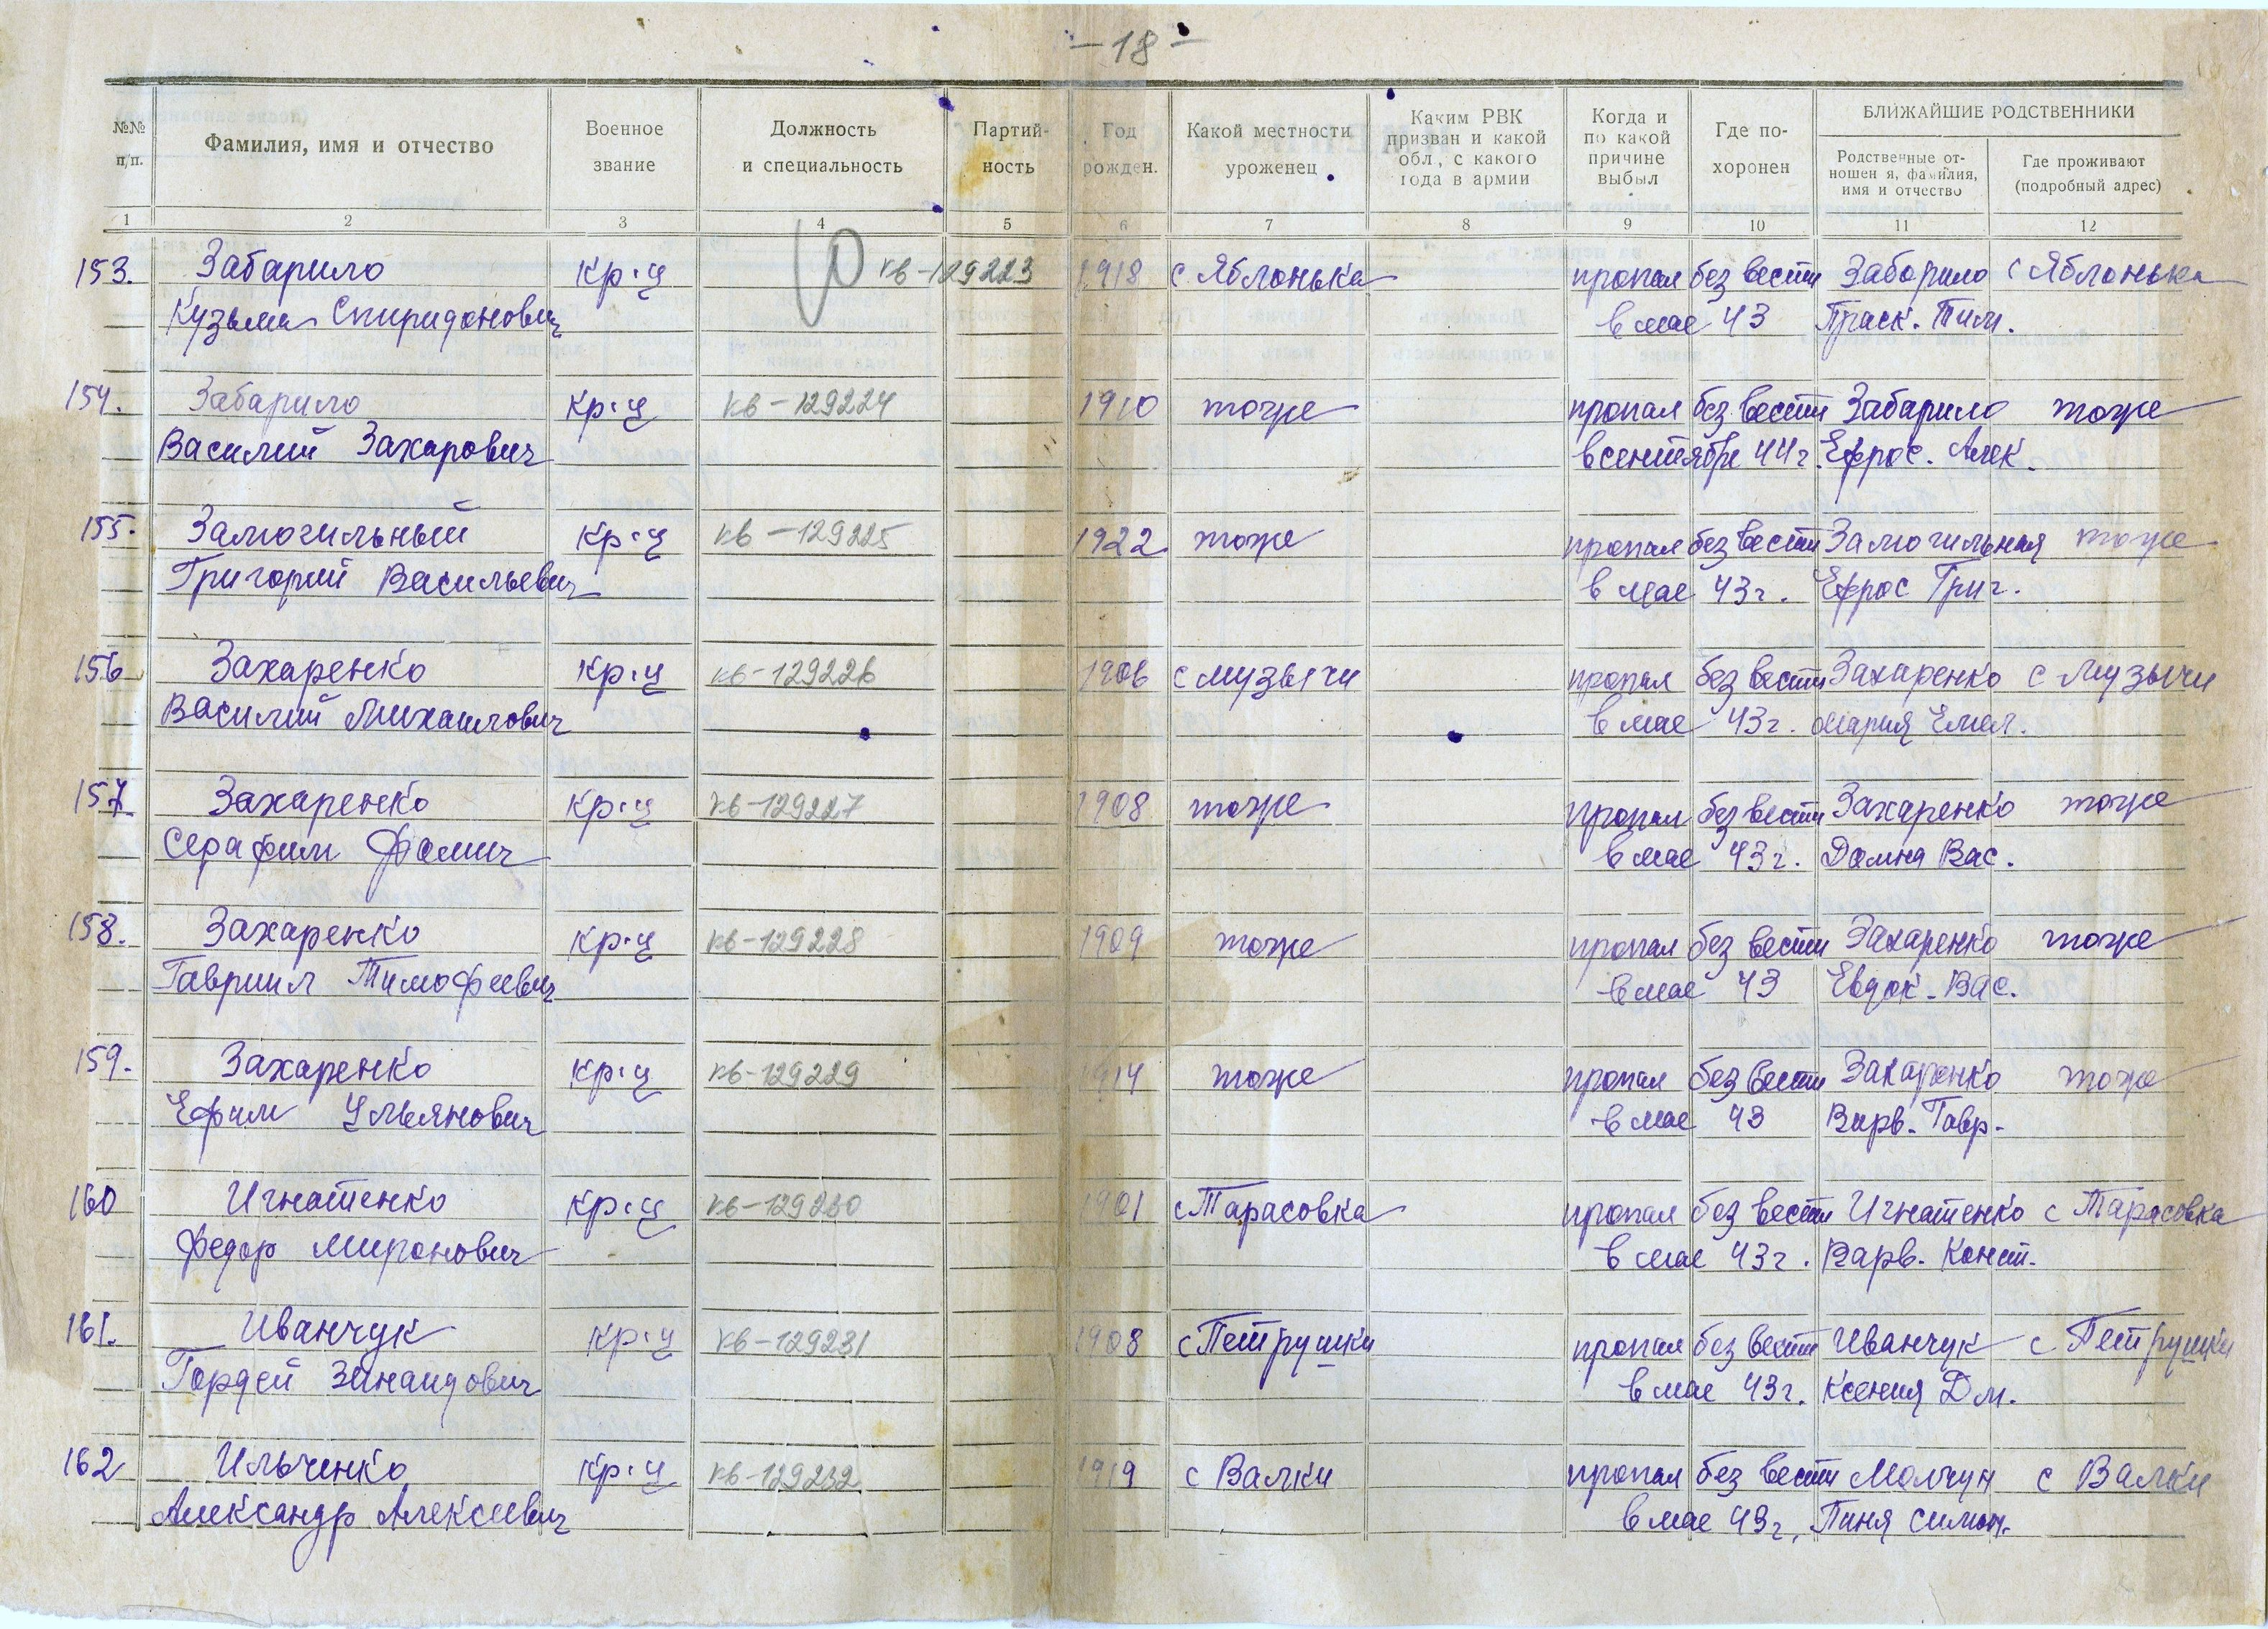 - 18 -
№№ п/п. Фамилия, имя и отчество Военное звание Должность и специальность Партий-ность Год рожден. Какой местности уроженец Каким РВК призван и какой обл., с какого года в армии Когда и по какой причине выбыл Где по-хоронен БЛИЖАЙШИЕ РОДСТВЕННИКИ
Родственные от-ношен я, фамилия, имя и отчество Где проживают (подробный адрес)
1 2 3 4 5 6 7 8 9 10 11 12
153. Забарило кр-ц кв-129223 1918 с Яблонька пропал без вести Забарило с Яблонька
Кузьма Спиридонович в мае 43 Праск. Тим.
154. Забарило кр-ц кв-129224 1910 тоже пропал без вести Забарило тоже
Василий Захарович в сентябре 44г. Ефрос. Алек.
155. Замогильный кр-ц кв-129225 1922 тоже пропал без вести Замогильная тоже
Григорий Васильевич в мае 43г. Ефрос Григ.
156 Захаренко кр-ц кв-129226 1906 с музычи пропал без вести Захаренко с Музычи
Василий Михаилович в мае 43г. Мария Емел.
157 Захаренко кр-ц кв-129227 1908 тоже пропал без вести Захаренко тоже
Серафим Фомич в мае 43г. Домна Вас.
158. Захаренко кр-ц кв-129228 1909 тоже пропал без вести Захаренко тоже
Гавриил Тимофеевич в мае 43 Евдок. Вас.
159. Захаренко кр-ц кв-129229 1914 тоже пропал без вести Захаренко тоже
Ефим Ульянович в мае 43 Варв. Гавр.
160 Игнатенко кр-ц кв-129230 1901 с Тарасовка пропал без вести Игнатенко с Тарасовка
Федор Миронович в мае 43г. Варв. Конст.
161. Иванчук кр-ц кв-129231 1908 с Петрушки пропал без вести Иванчук с Петрушки
Гордей Зинаидович в мае 43г. Ксения Дм.
162 Ильченко кр-ц кв-129232 1919 с Валки пропал без вести Молчун с Валки
Александр Алексеевич в мае 43г. Пиня Симон.